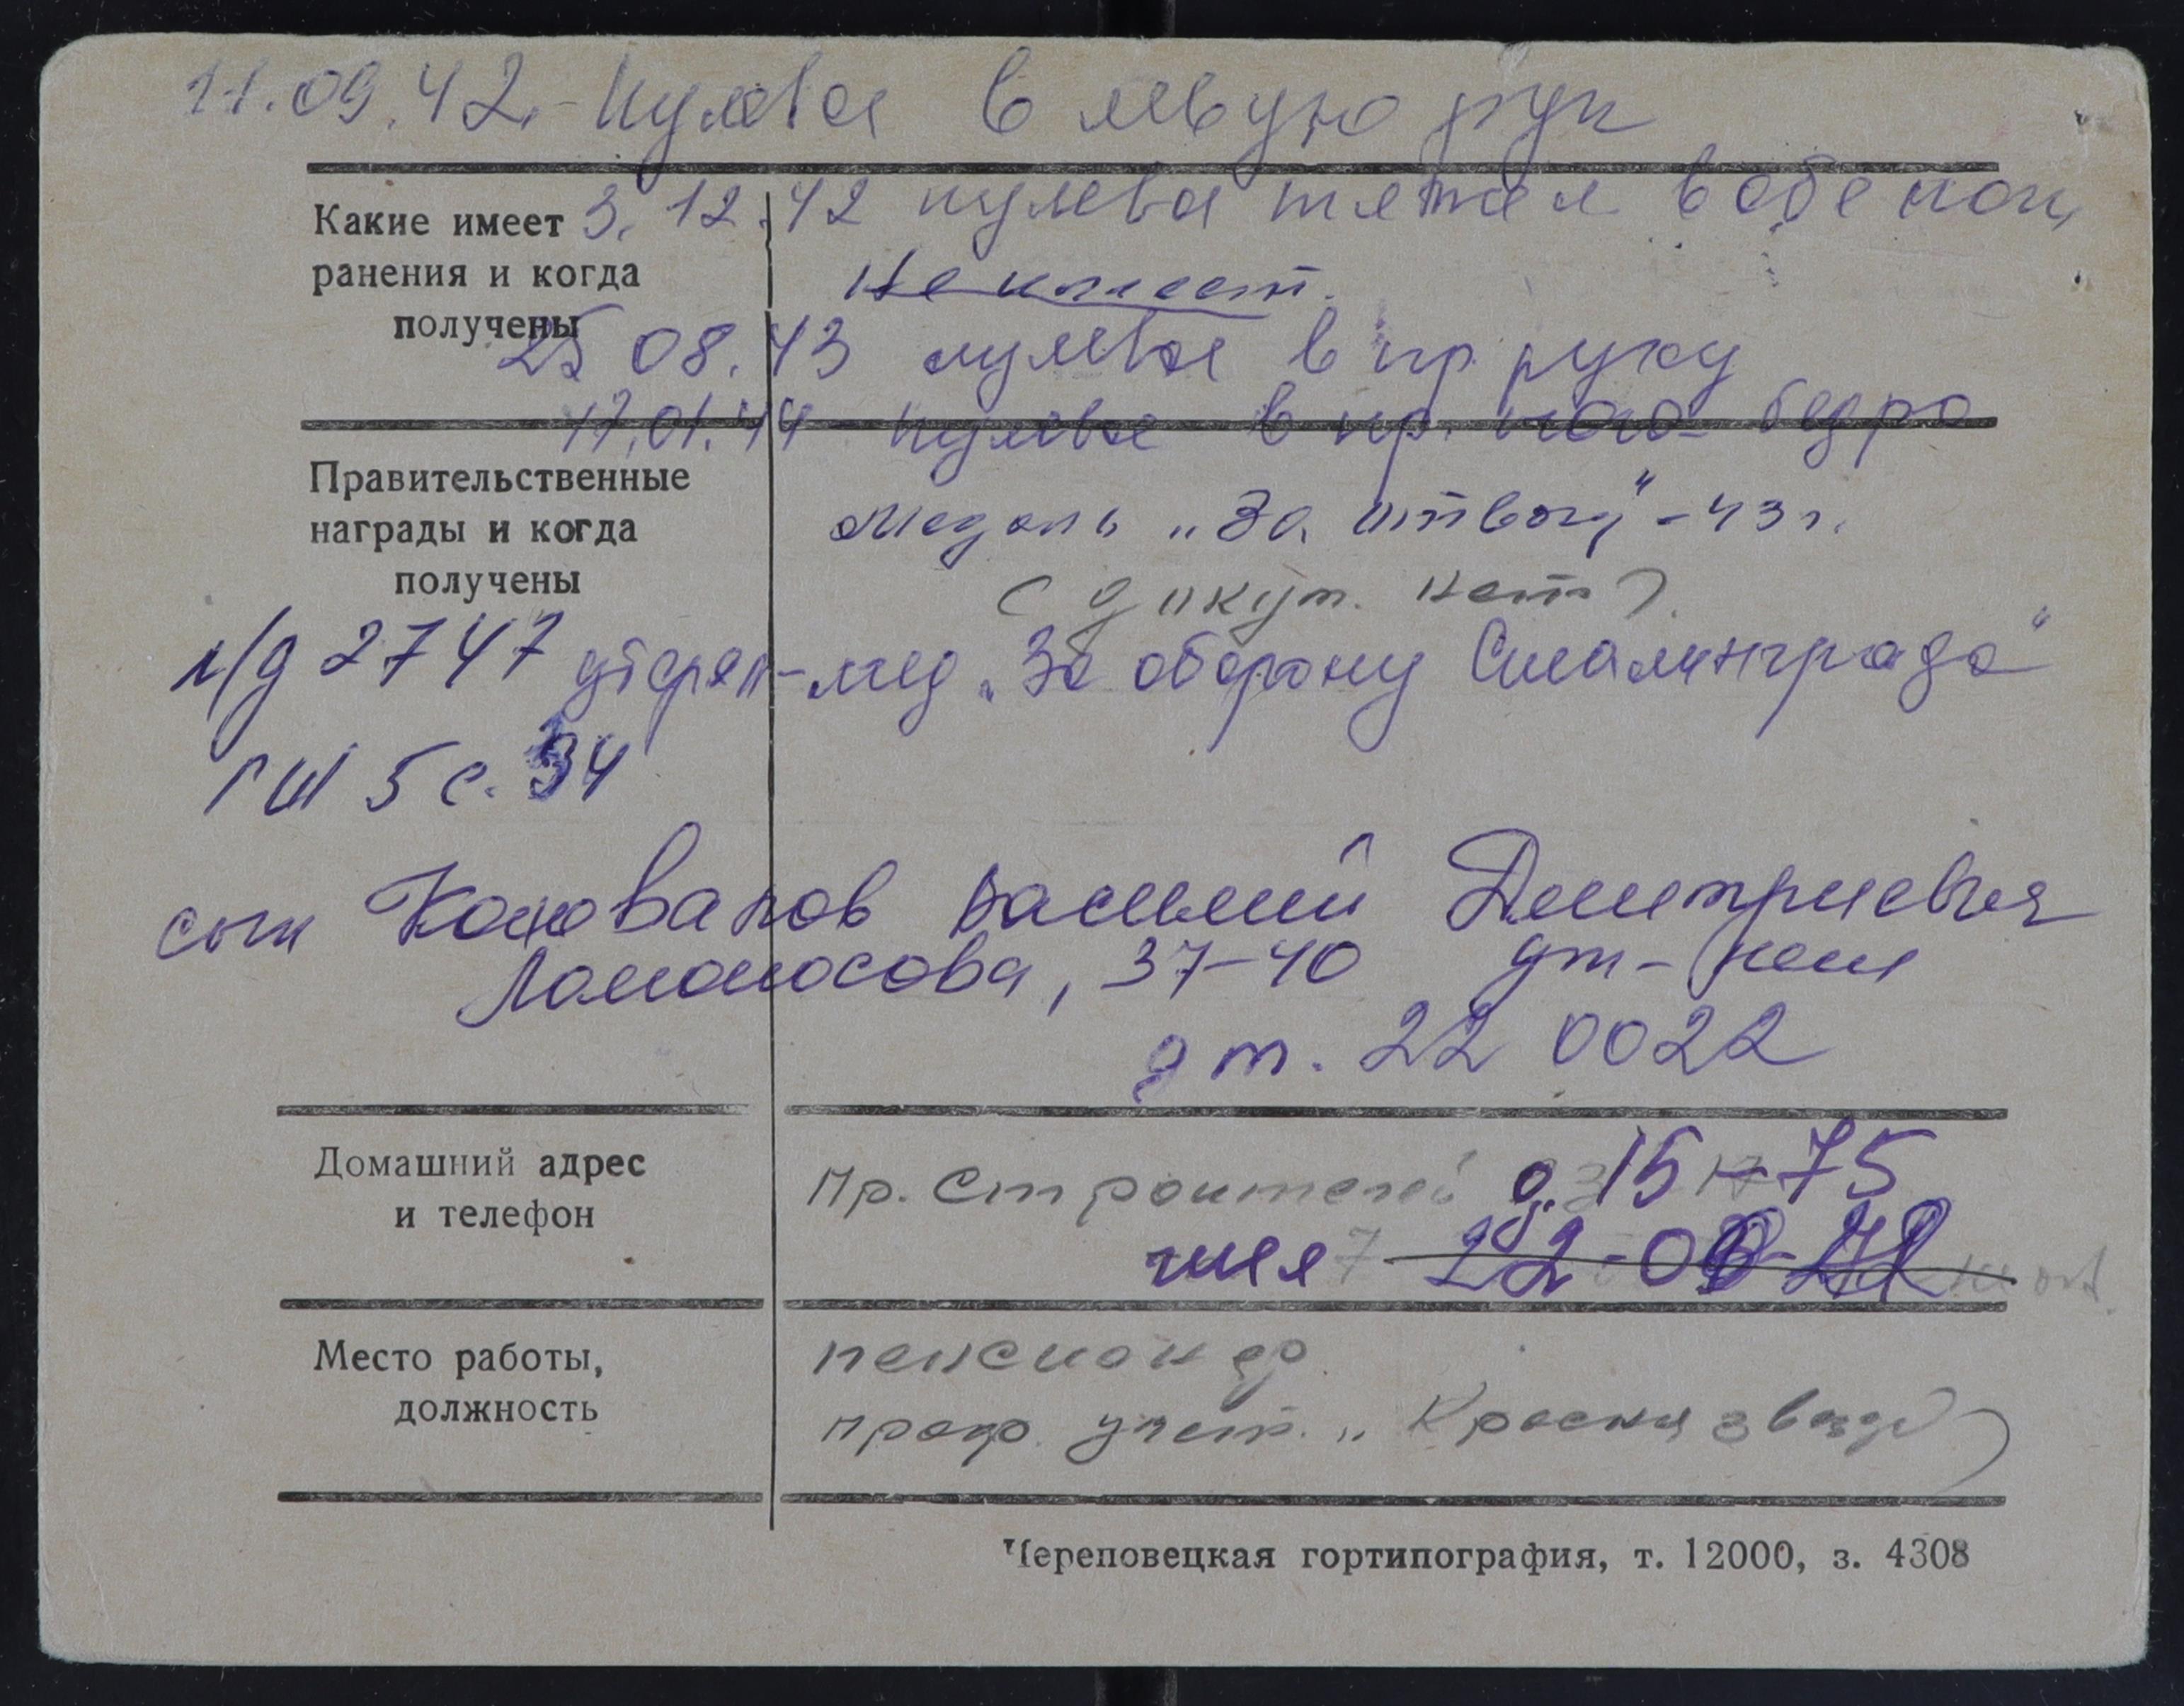 11.09.42 - пулевое в левую рук
Какие имеет 3.12.42 пулевое тяжел в обе ноги
ранения и когда Не имеет.
получены 25 08.43 пулевое в пр. руку
17.01.44 пулевое в пр. нога бедро
Правительственные
награды и когда Медаль „За отвагу" - 43 г.
получены (докум. нет).
л/д 2747 утерян - мед „За оборону Сталинграда"
ГШ 5 с. 34
сын Коновалов Василий Дмитриевич
Ломоносова, 37-40
д т. 22 0022
Домашний адрес Пр. Строителей д. 15 - 75
и телефон 22-0
Место работы, пенсионер.
должность проф. учет. „Красная звезда
Череповецкая гортипография, т. 12000, з. 4308